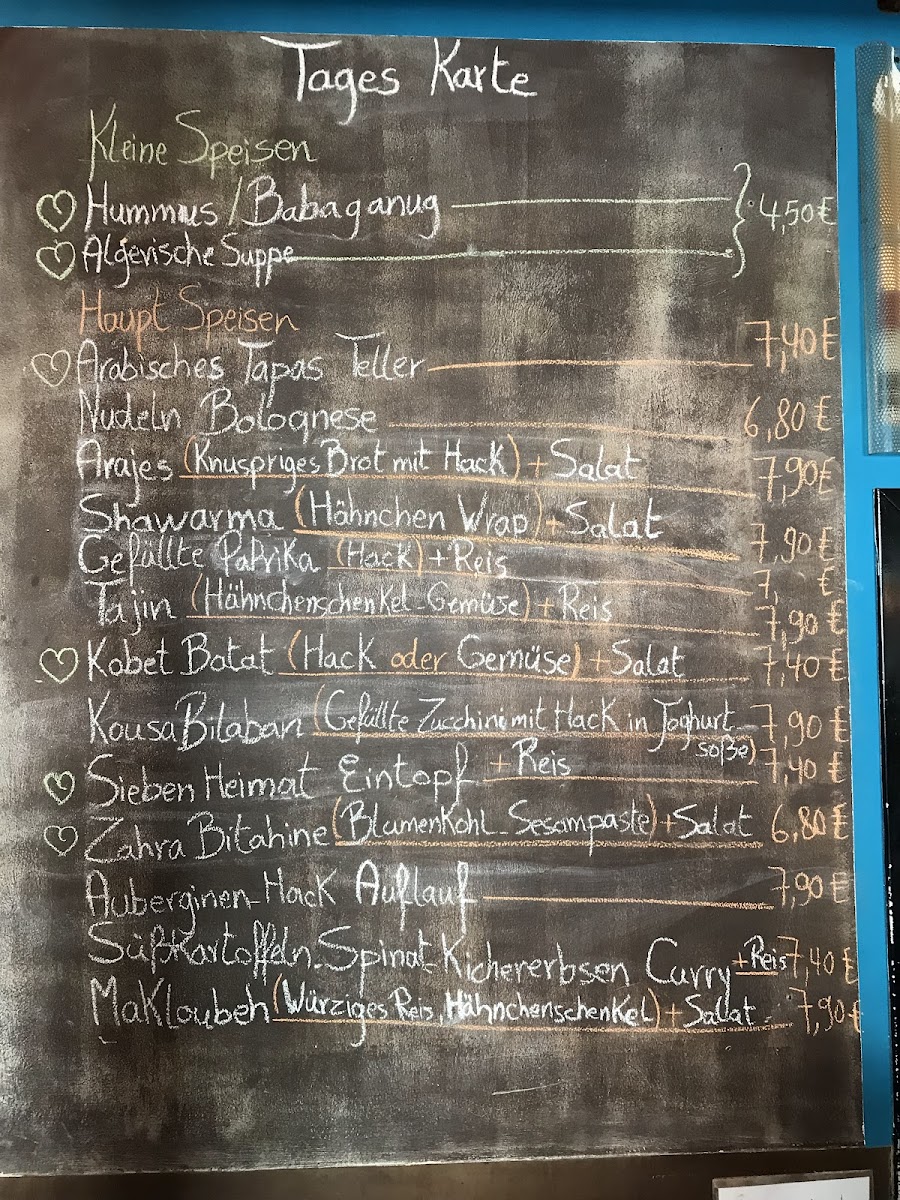 Tages Karte
Kleine Speisen
Hummus/Babaganug
4,50€
Algerische Suppe
Haupt Speisen
Arabisches Tapas Teller 7,40€
Nudeln Bolognese 6,80€
Arajes (Knuspriges Brot mit Hack) + Salat 7,90€
Shawarma (Hähnchen Wrap) + Salat 7,90€
Gefüllte Paprika (Hack) + Reis 7, €
Tajin (Hähnchenschenkel-Gemüse) + Reis 7,90€
Kobet Batat (Hack oder Gemüse) + Salat 7,40€
Kousa Bilaban (Gefüllte Zucchini mit Hack in Joghurt- 7,90€
soße)
Sieben Heimat Eintopf + Reis 7,40€
Zahra Bitahine (Blumenkohl-Sesampaste) + Salat 6,80€
Auberginen-Hack Auflauf 7,90€
Süßkartoffeln-Spinat-Kichererbsen Curry + Reis 7,40€
Makloubeh (Würziges Reis, Hähnchenschenkel) + Salat 7,90€